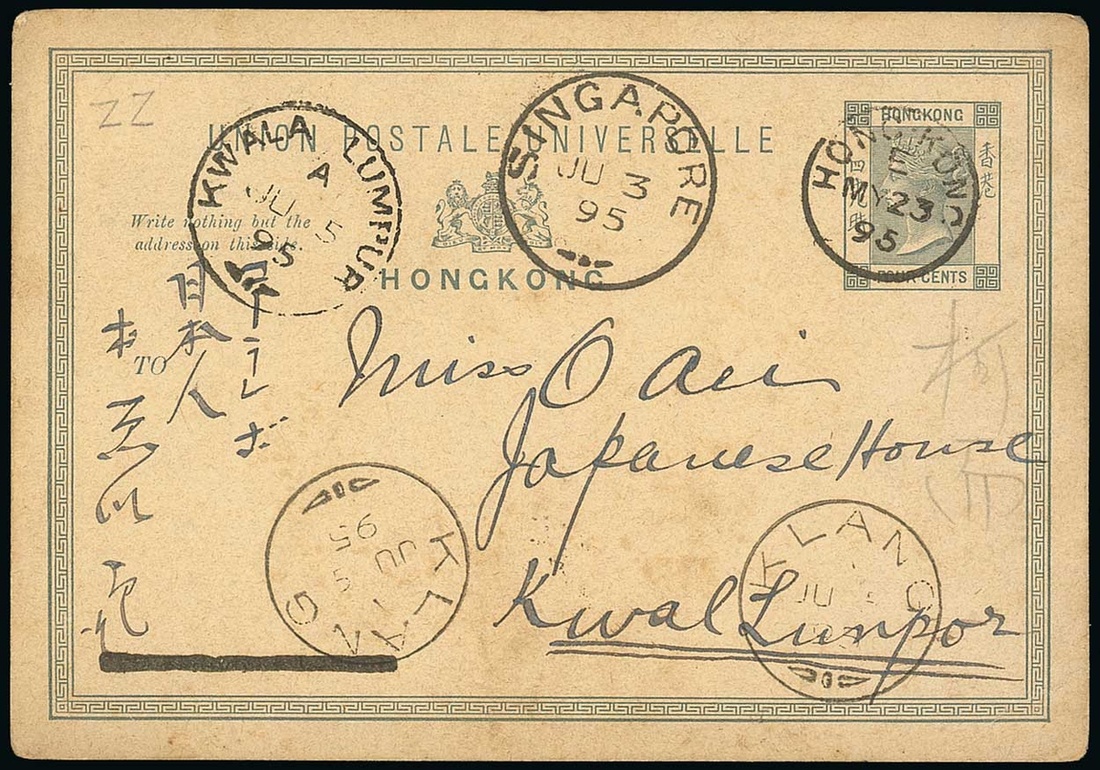 ZZ
UNION POSTALE UNIVERSELLE
KWALA LUMPUR
A
JU 5
95
SINGAPORE
JU 3
95
HONGKONG
香港
HONG KONG
E
MY 23
95
FOUR CENTS
Write nothing but the
address on this side.
HONGKONG
TO
日本人
Miss O
Japanese House
Kwal Lunpor
KLANG
JU 5
95
KLANG
JU